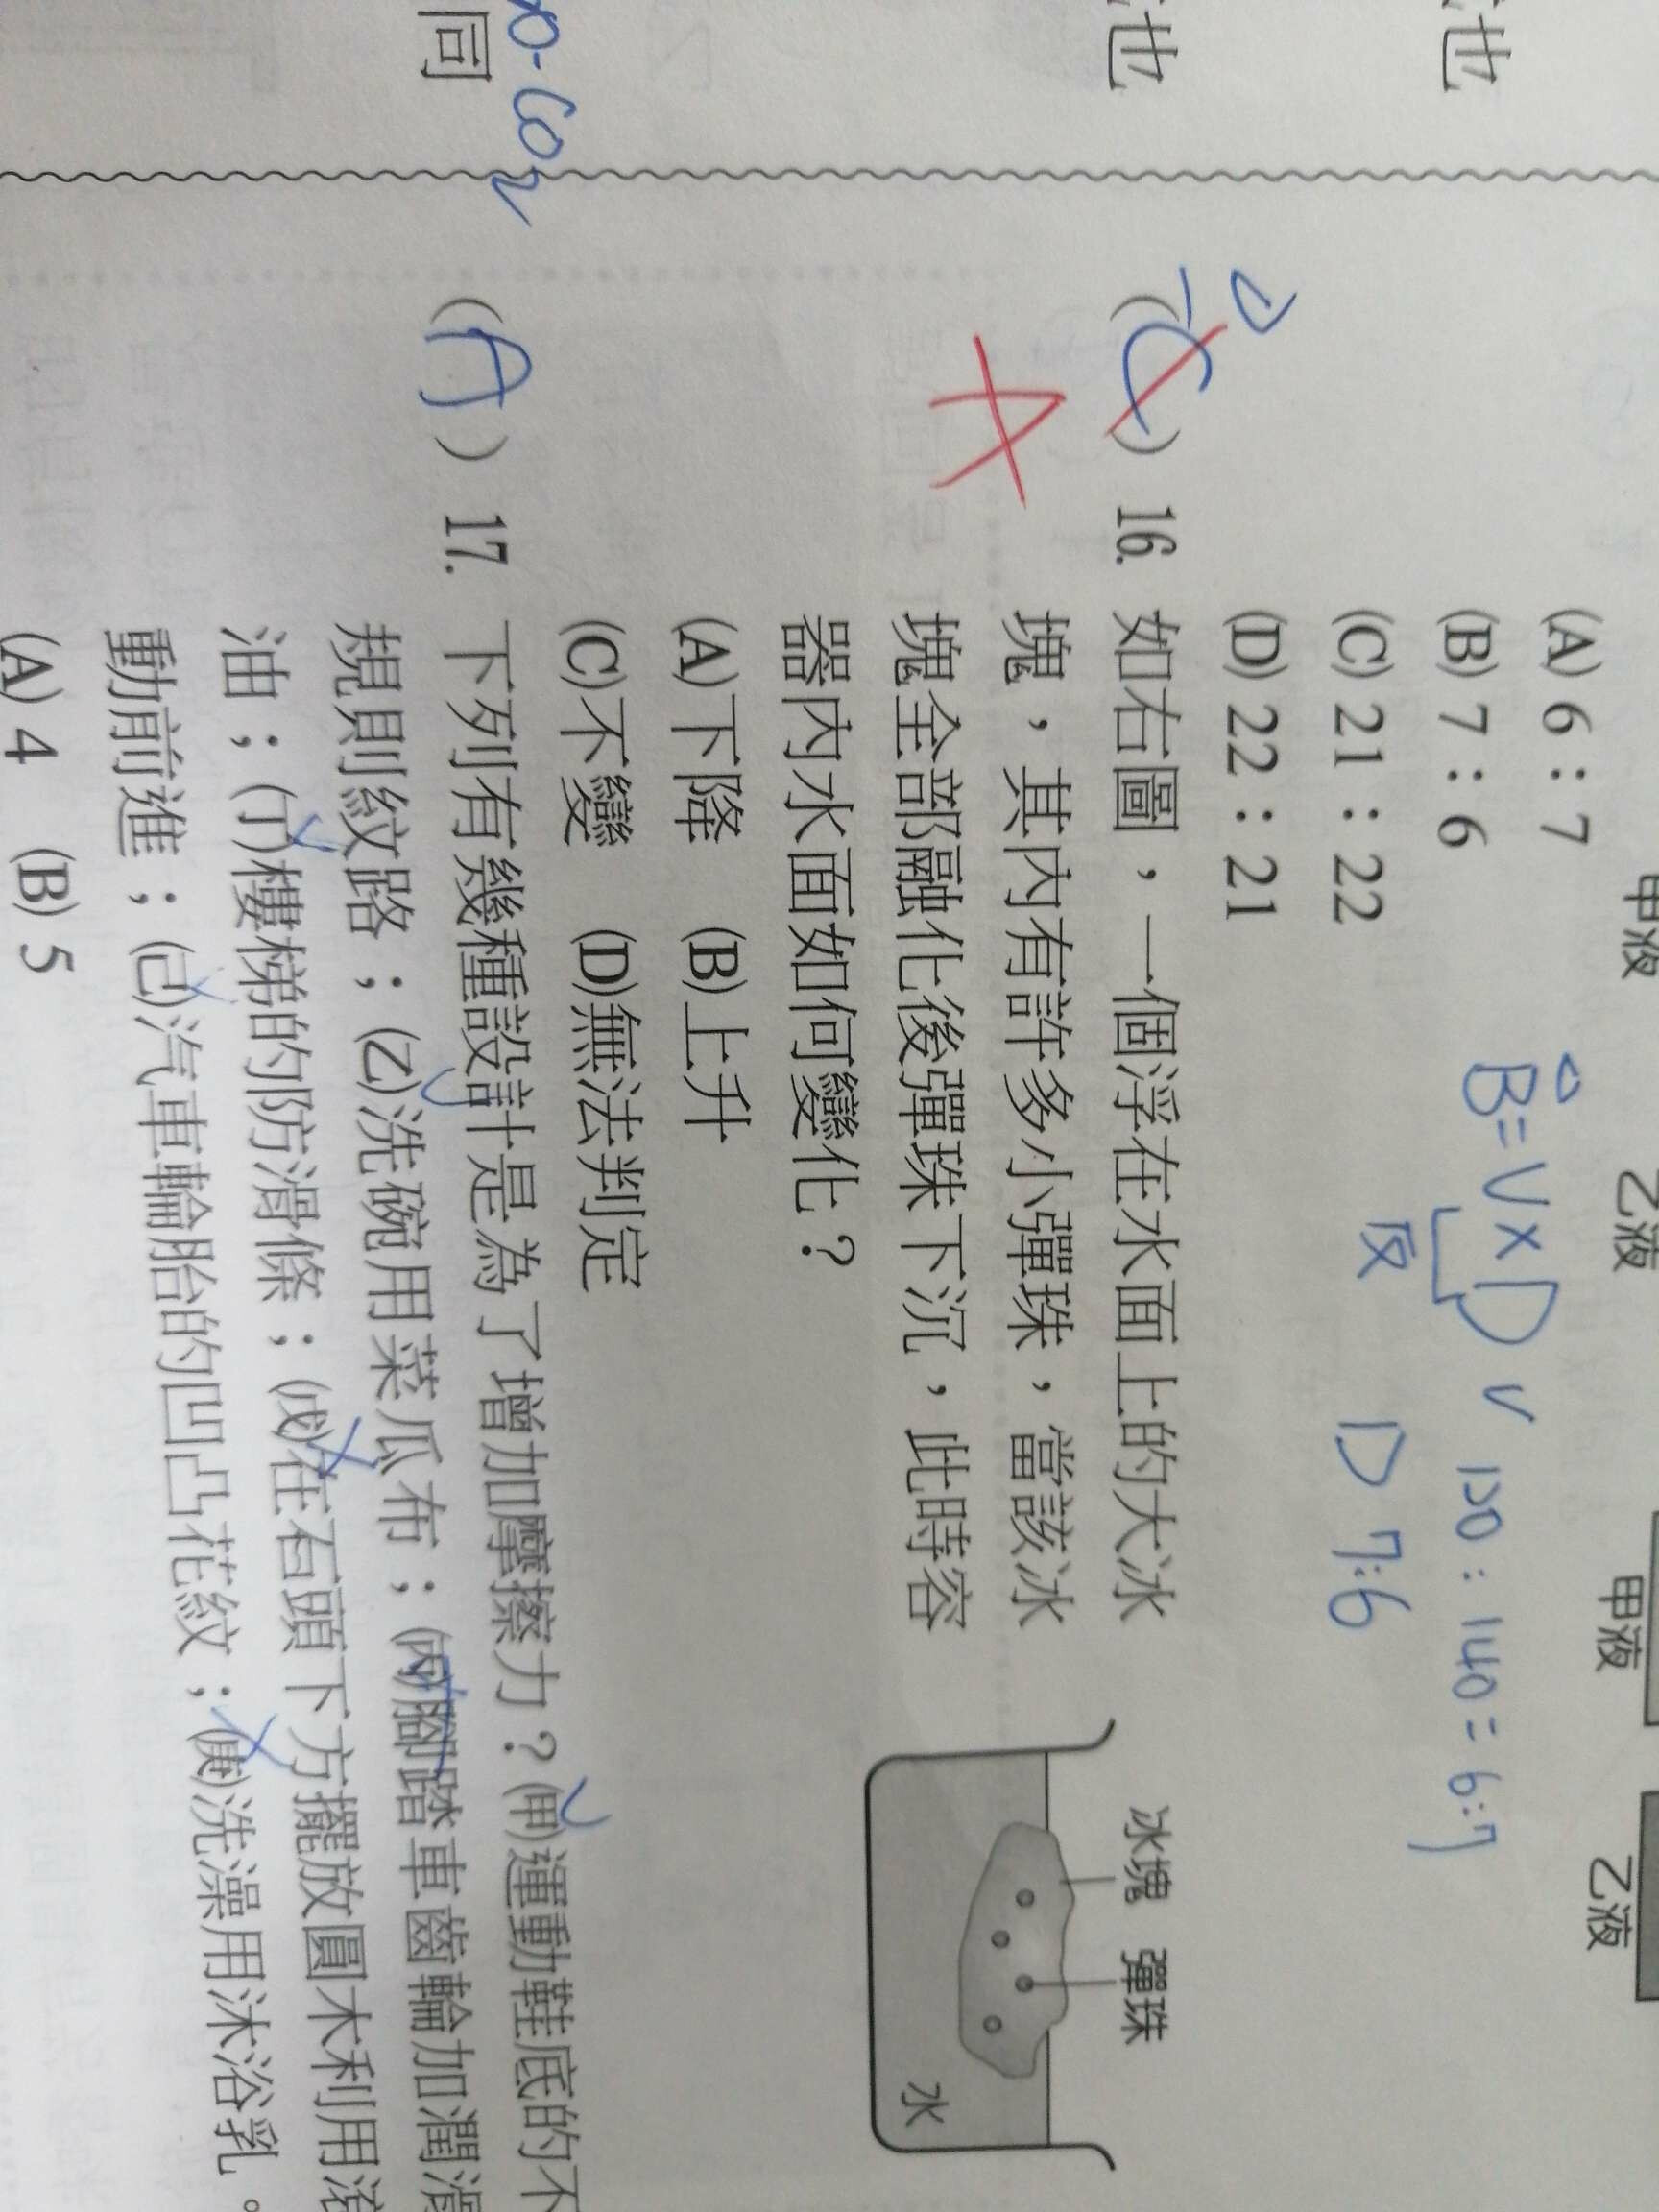 也
也
O-CO2
同
甲液
乙液
甲液
乙液
(A) 6：7
(B) 7：6
(C) 21：22
(D) 22：21
B=V×D
反
V 120 : 140 = 6:7
D 7:6
D
(C) 16. 如右圖，一個浮在水面上的大冰
塊，其內有許多小彈珠，當該冰
塊全部融化後彈珠下沉，此時容
器內水面如何變化？
(A)下降 (B)上升
(C)不變 (D)無法判定
A
冰塊
彈珠
水
(A) 17. 下列有幾種設計是為了增加摩擦力？(甲)運動鞋底的不
規則紋路；(乙)洗碗用菜瓜布；(丙)腳踏車齒輪加潤滑
油；(丁)樓梯的防滑條；(戊)在石頭下方擺放圓木利用滾
動前進；(己)汽車輪胎的凹凸花紋；(庚)洗澡用沐浴乳。
(A) 4 (B) 5